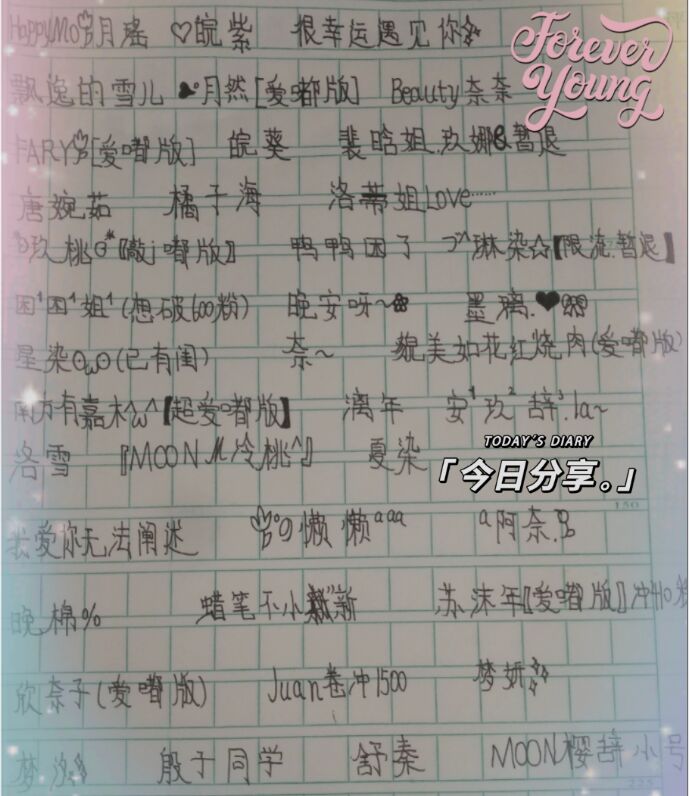 HappyMo玥月瑶 ♡皖紫 很幸运遇见你
Forever
Young
飘逸的雪儿 月然[爱嘟版] Beauty奈奈
FARY[爱嘟版] 皖葵 裴晗姐.玖娜&暂退
唐婉茹 橘子海 洛蒂姐Love……
玖桃[敲j嘟版] 鸭鸭困了 琳染☆【限流.暂退】
困¹困¹姐¹(想破600粉) 晚安呀~ 墨璃.❤
星染ÒωÓ(已有闺) 奈~ 貌美如花红烧肉(爱嘟版)
南方有嘉木^ω^【超爱嘟版】 漓年 安¹玖²辞³.la~
TODAY'S DIARY
「今日分享。」
洛雪 『MOON 冷桃^』 夏染
我爱你无法阐述 懒懒ªªª ª阿奈.
晚棉% 蜡笔不小新 苏沫年『爱嘟版』冲
欣奈子(爱嘟版) Juan卷冲1500 梦妍
梦 殷于同学 舒秦 MOON樱辞小号